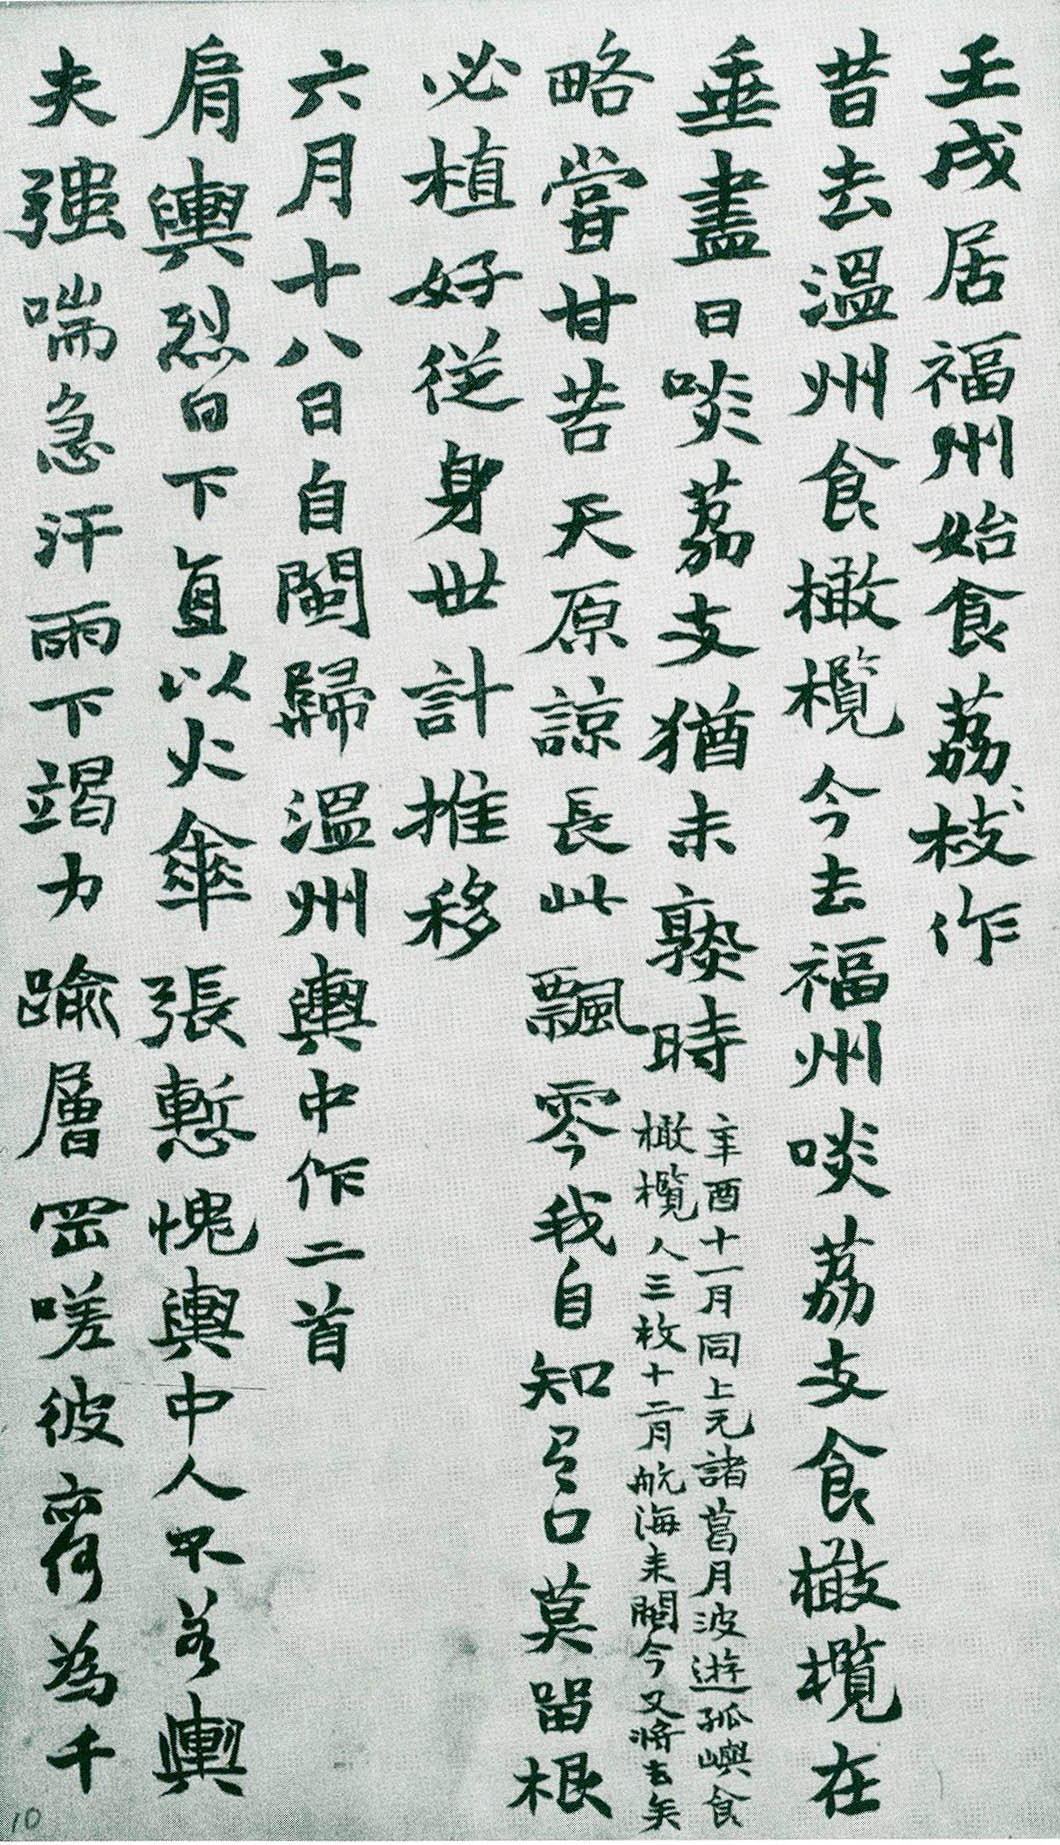 壬戌居福州始食荔枝作
昔去溫州食橄欖今去福州啖荔支食橄欖在
垂盡日啖荔支猶未孰時
辛酉十一月同上元諸葛月波遊孤嶼食
橄欖人三枚十二月航海来閩今又將去矣
略嘗甘苦天原諒長此飄零我自知另口莫留根
必植好從身世計推移
六月十八日自閩歸溫州輿中作二首
肩輿烈日下直以火傘張慙愧輿中人不若輿
夫強喘急汗雨下竭力踰層罡嗟彼齊為千
10